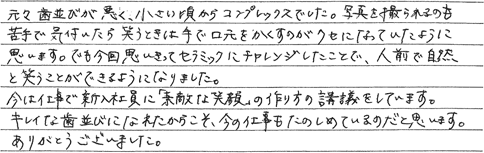 元々歯並びが悪く、小さい頃からコンプレックスでした。写真を撮られるのも
苦手で気付いたら笑うときは手で口元をかくすのがクセになっていたように
思います。でも今回思いきってセラミックにチャレンジしたことで、人前で自然
と笑うことができるようになりました。
今は仕事で新入社員に「素敵な笑顔」の作り方の講義をしています。
キレイな歯並びになれたからこそ、今の仕事もたのしめているのだと思います。
ありがとうございました。